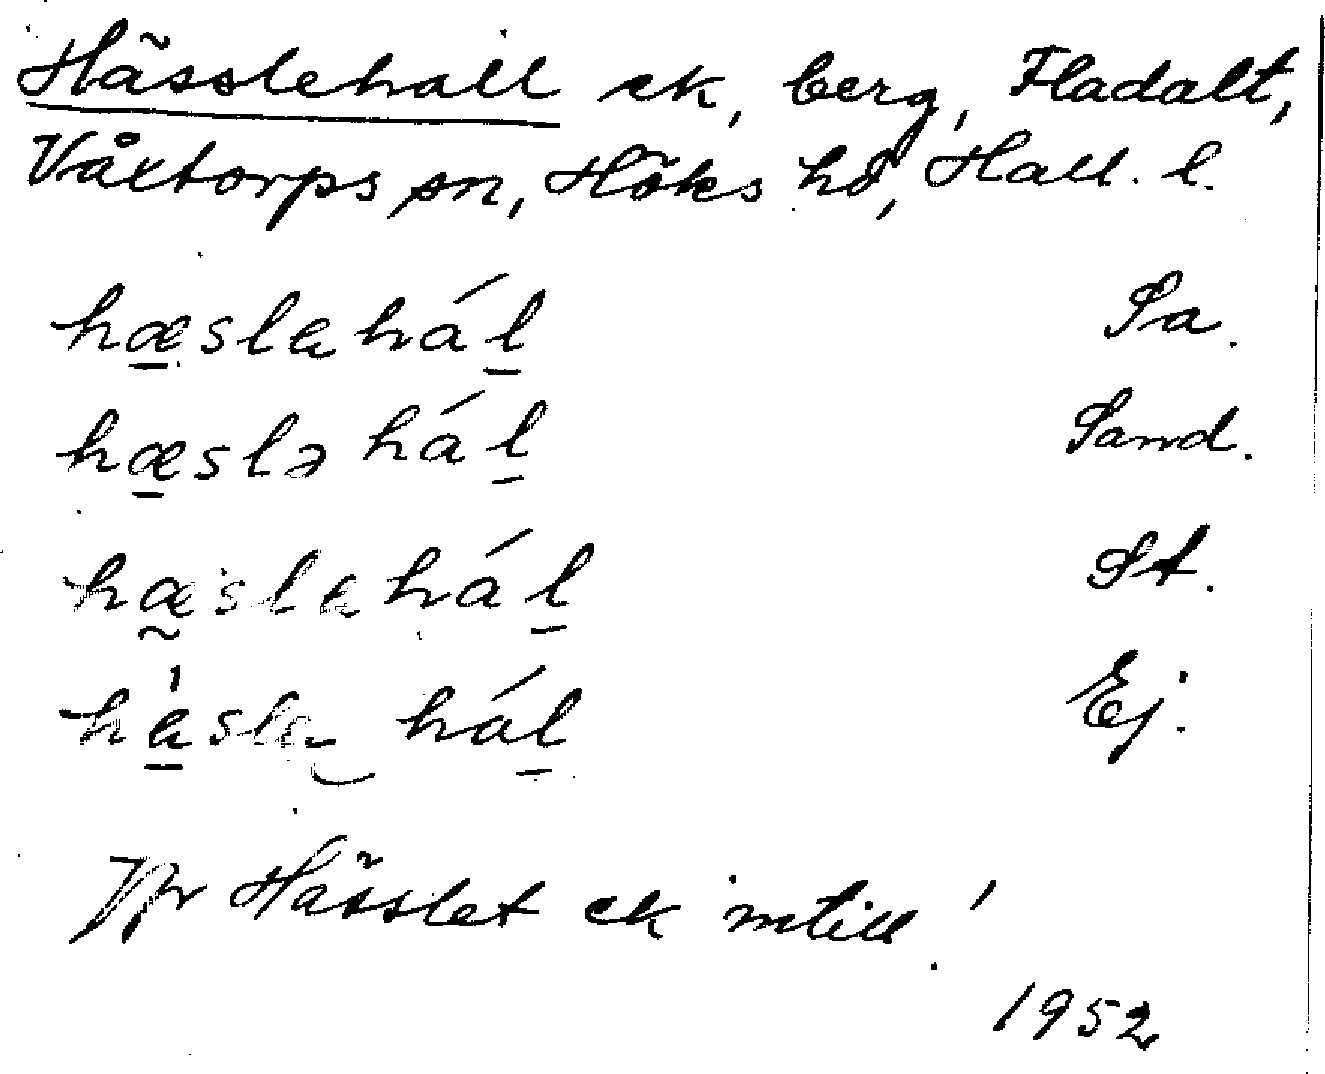 Hässlehall ek, berg, Fladalt,
Våxtorps sn, Höks hd, Hall. l.
hæslahál Sa.
hæslə hál Sand.
hæslahál St.
hàsla hál Ej.
Jfr Hässlet ek intill!
1952